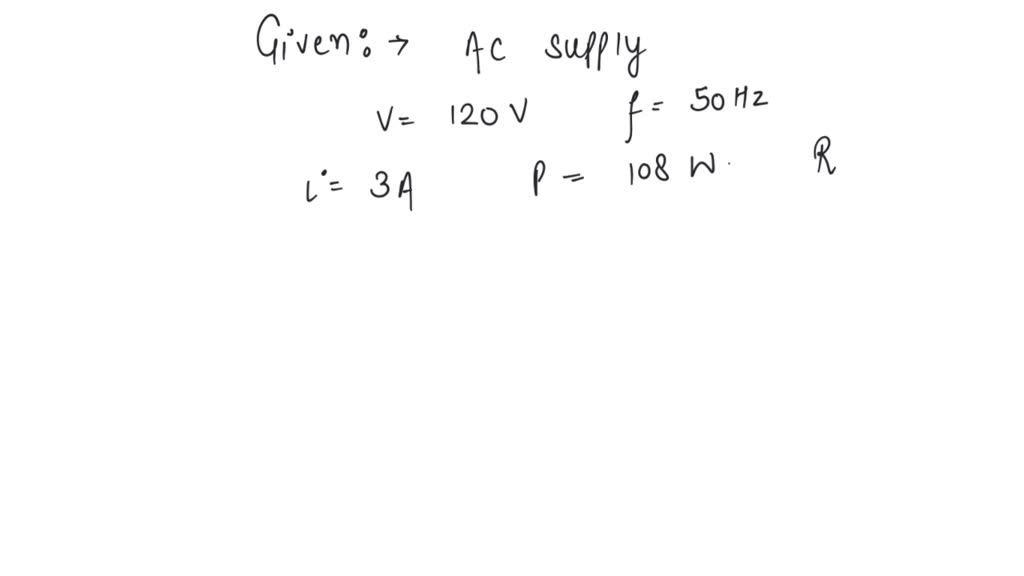 Given:→ AC supply
V= 120 V f= 50 Hz
i= 3A P= 108 W. R